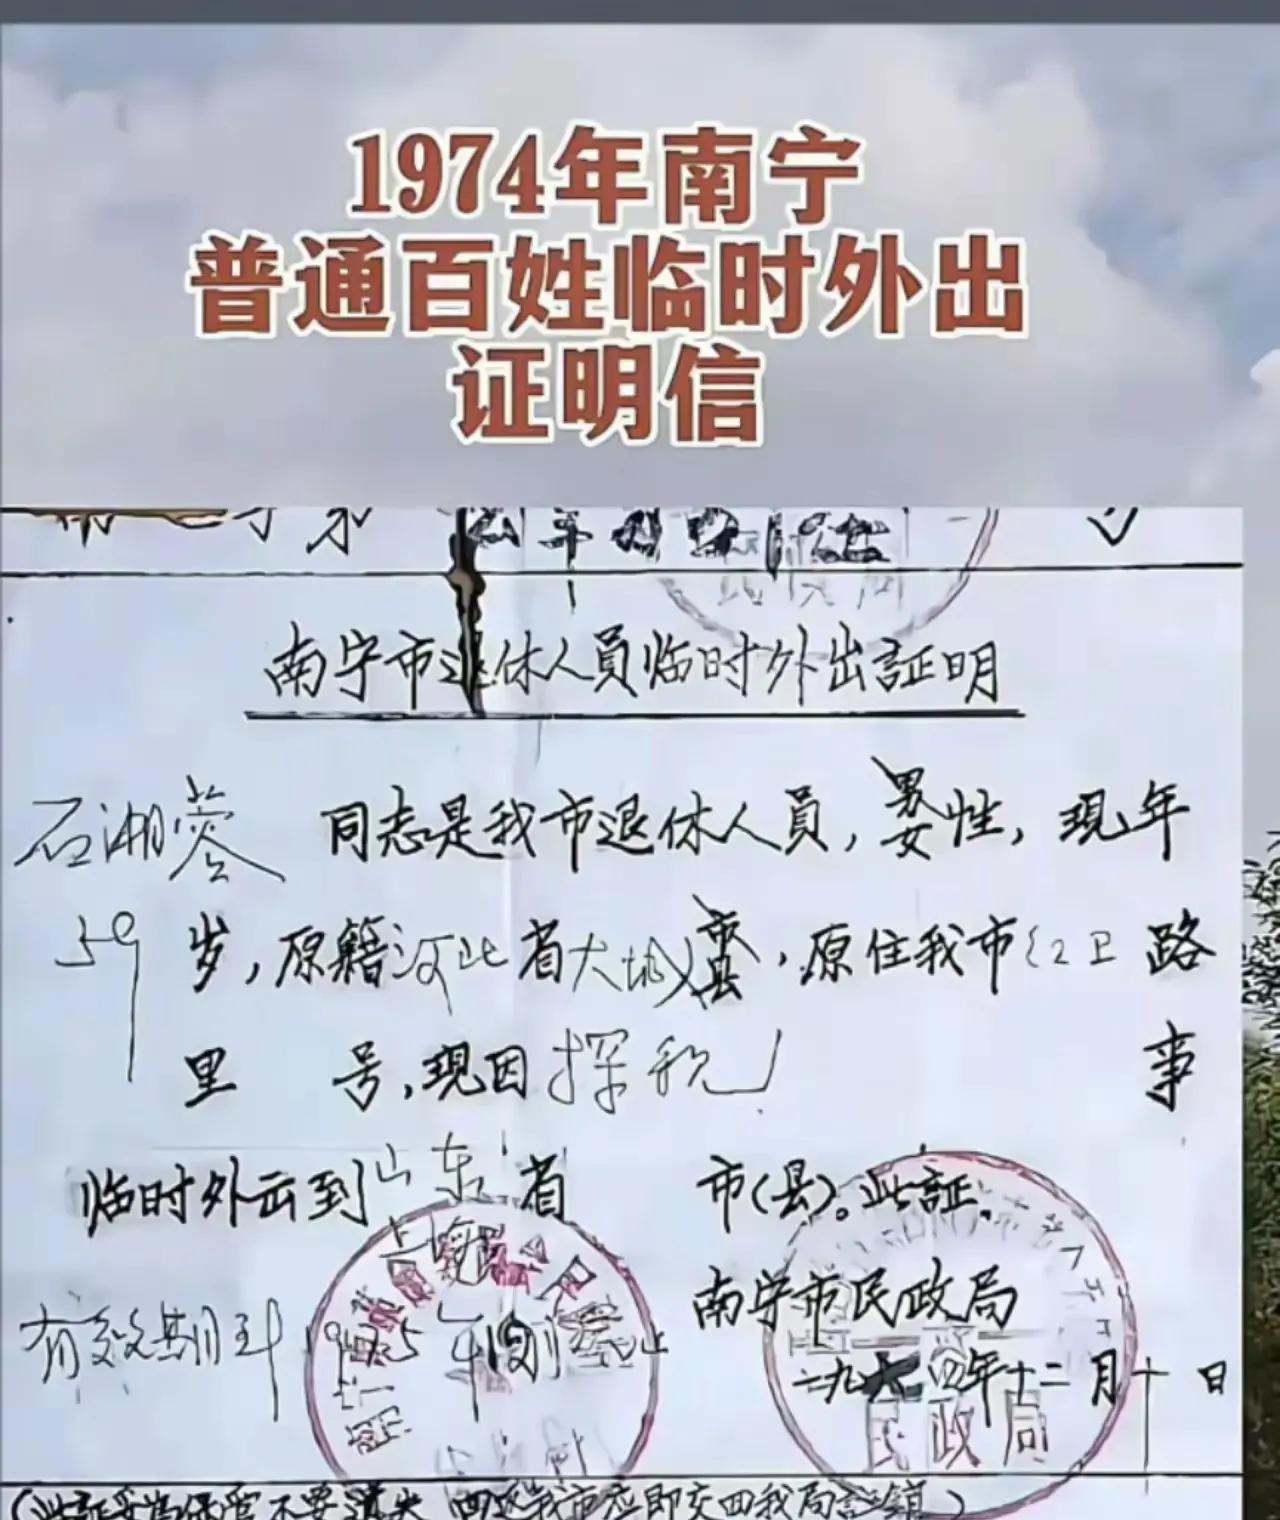 1974年南宁
普通百姓临时外出
证明信
南宁市退休人员临时外出証明
石湘蓉 同志是我市退休人员,男女性,现年
59 岁,原籍河北省大城市县,原住我市红卫路
里 号,现因探亲 事
临时外出到山东省 市(县)。此証.
南宁市民政局
有效期到1975年 止
一九六四年十二月十日
民政局
(此証妥为保管不要遗失 回返我市应即交回我局註销)